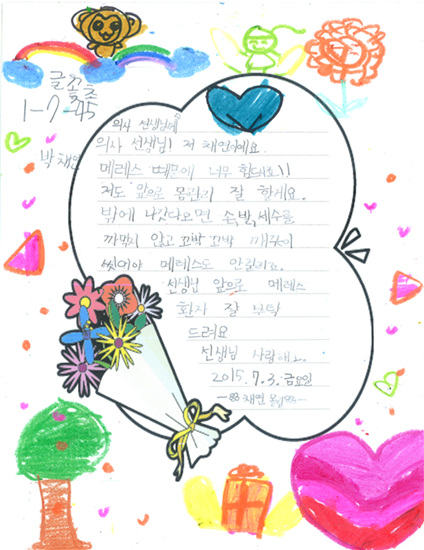 글꽃초
1-7-45
박채연
의사 선생님께
의사 선생님! 저 채연이에요.
메레스 때문에 너무 힘드시죠!!
저도 앞으로 몸관리 잘 할게요.
밖에 나갔다오면 손,발,세수를
까먹지 않고 꼬박 꼬박 깨끗이
씻어야 메레스도 안걸리죠.
선생님 앞으로 메레스
환자 잘 부탁
드려요
선생님 사랑해요.
2015.7.3.금요일
채연 올림